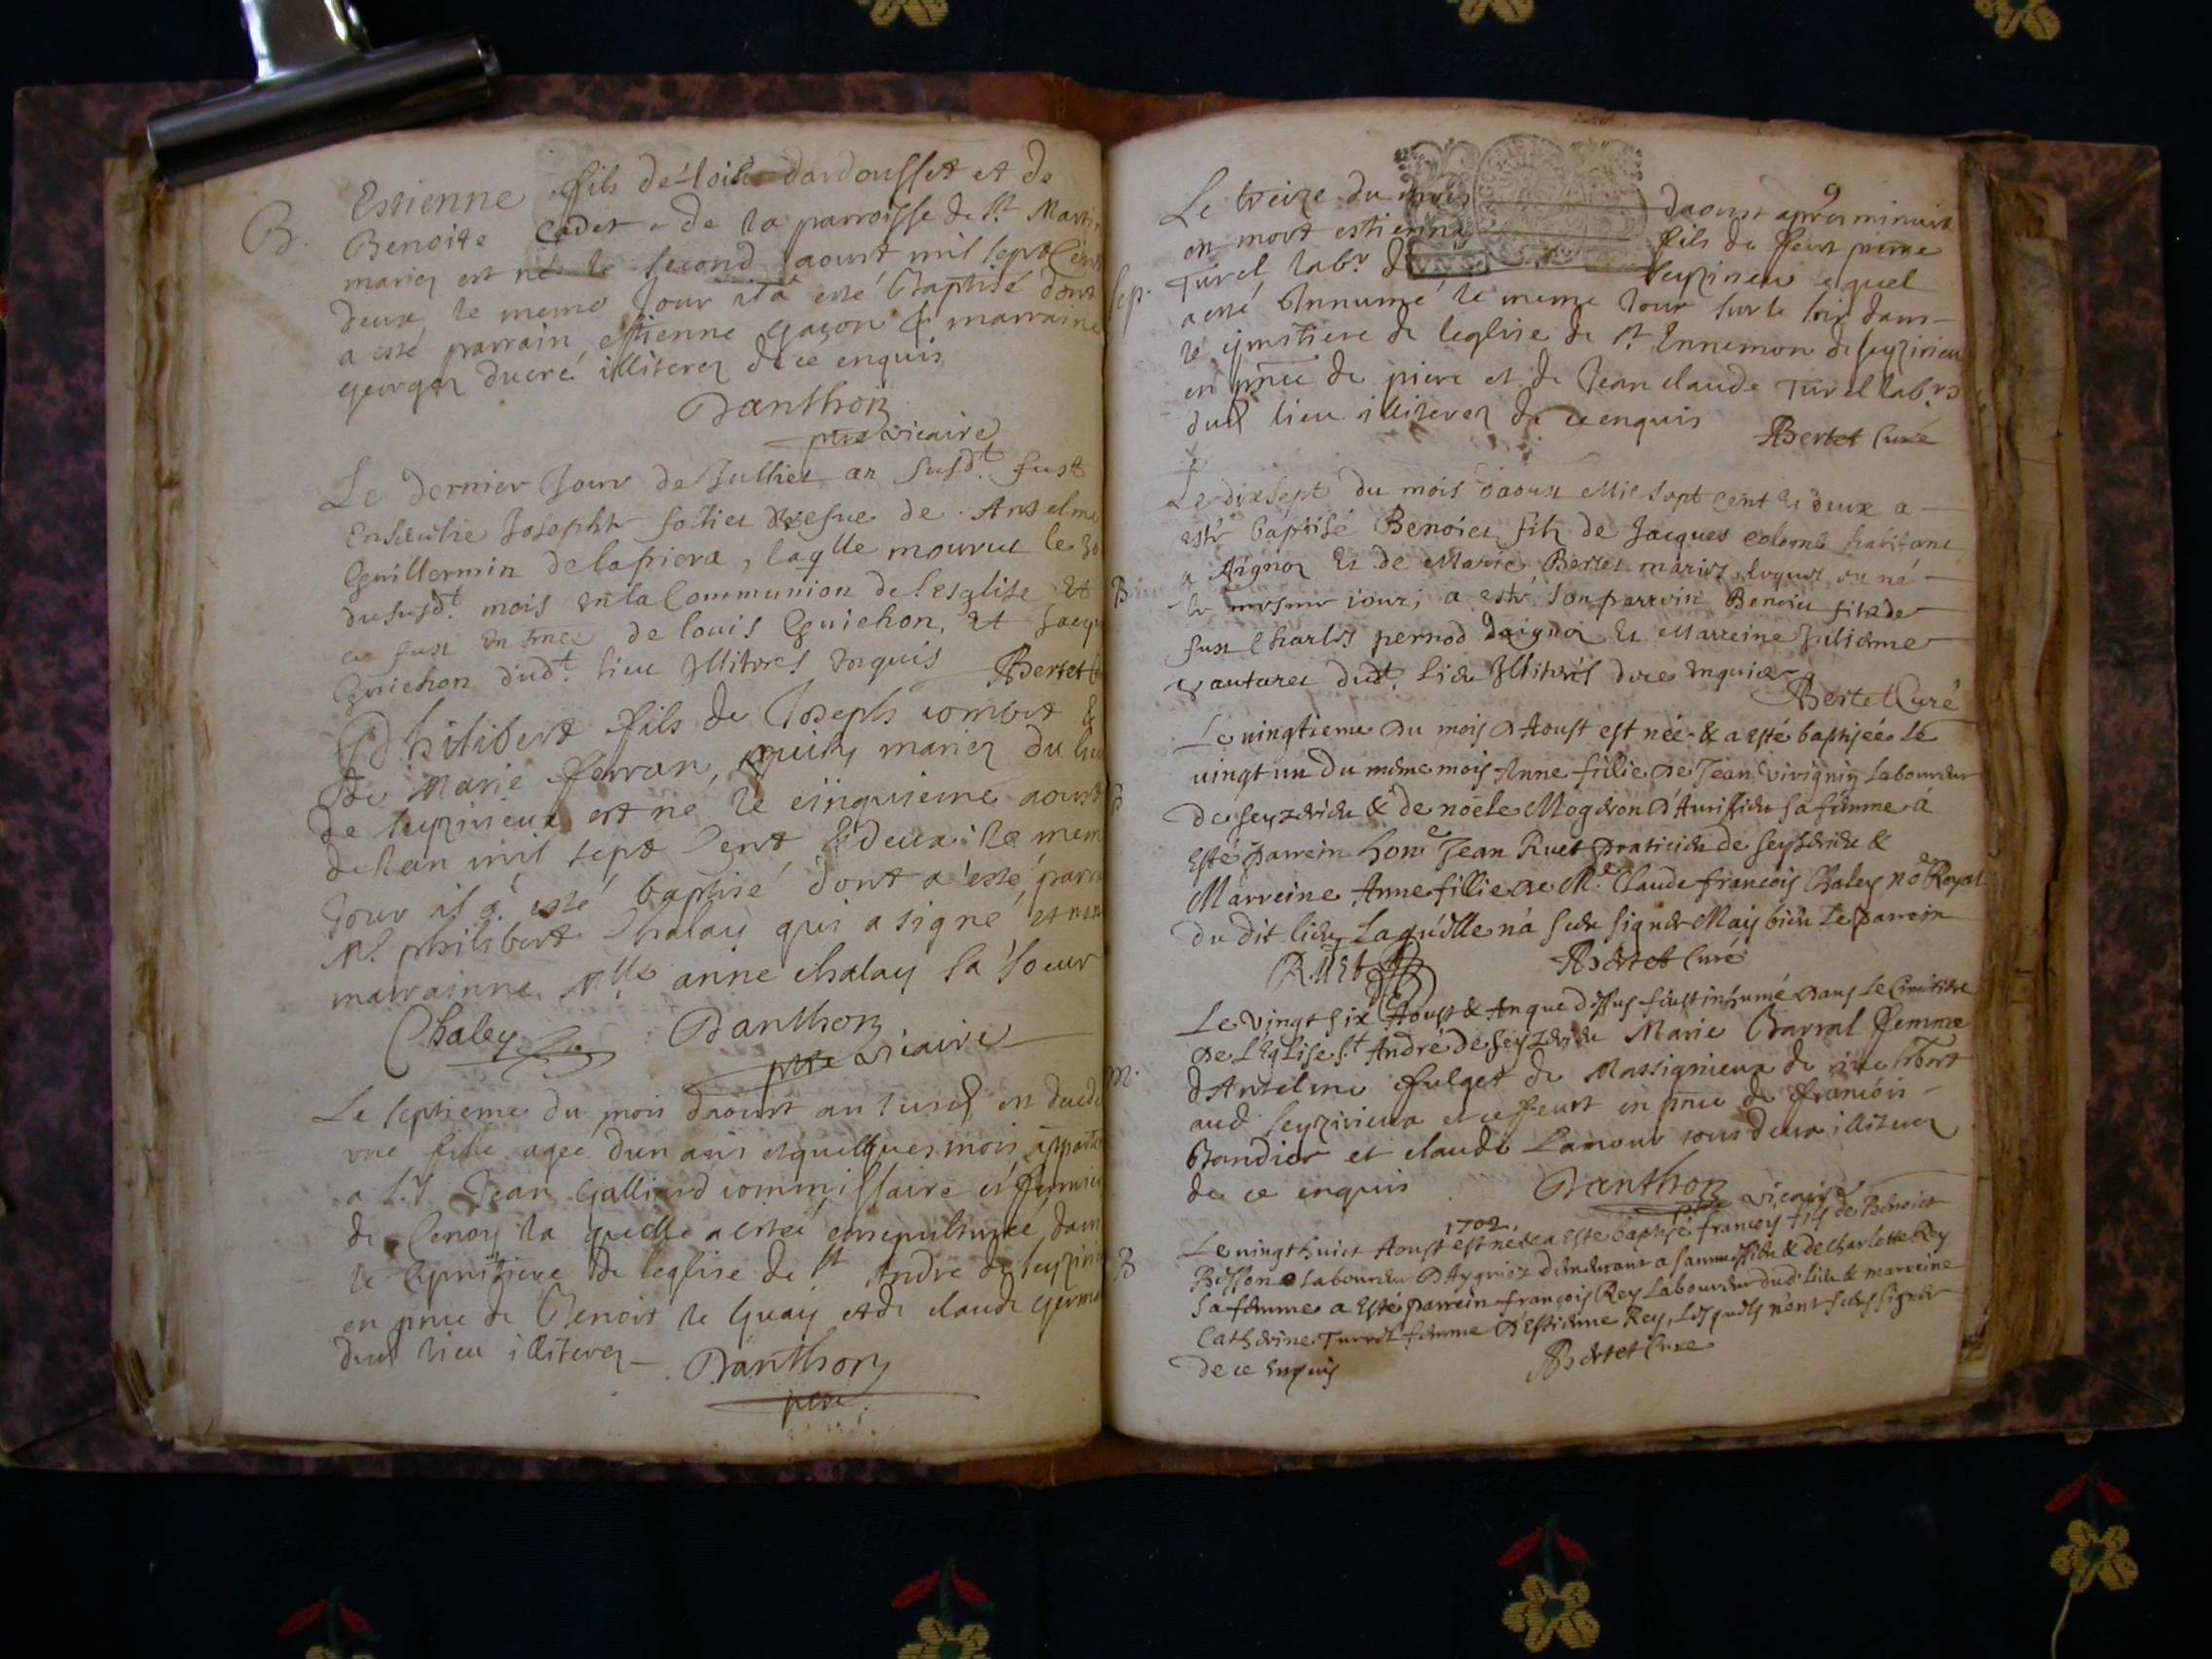 B.
Estienne fils de Dardousset et de
Benoite Cadet de la parroisse de St Marti
mariez est né le second aoust mil sept Cent
deux le meme Jour il a esté Baptisé dont
a esté parrain estienne & marraine
ducré illiterez de ce enquis
Danthon
ptre vicaire
Le dernier Jour de Julliet an susdt. fust
Josephte vesue de Anselme
Guillermin delapierra, laqlle mourut le 30
dususdt. mois en la Communion de l'esglise Et
ce fust en pnce de louis Guichon, et Jacq
Guichon dudt. lieu Illitores Enquis Bertet
Philibert fils de Joseph combet &
de Marie ferran, mariez du lieu
de seyzirieux est né le cinquieme aoust
de lan mil sept Cent & deux le mem
Jour il a esté baptisé dont a esté parra
Mr. philibert Chalay qui a signé et
marrainne Mlle anne chalay sa soeur
Chaley Danthon
ptre vicaire
Le septieme du mois daoust an susd est
une fille agée dun ans et quelques mois
a Sr. Jean Galliard commissaire et
de la quelle a esté ensepulturée dans
le Cymitiere de leglise de St André de seyziri
en pnce de Benoit le Guay et de claude
dud lieu illiterez Danthon
ptre
9
Le treize du mois daoust apres minuit
est mort estienne fils de feu pierre
Turel labr de seyzirieu lequel
Sep.
a esté Innumé le meme Jour sur le soir dans
le cymitiere de leglise de St Ennemon de seyzirieu
en pnce de piere et de Jean claude Turel labrs
dud lieu illiterez de ce enquis
Bertet Curé
Le dixsept du mois daoust Mil sept Cent Et deux a
esté baptisé Benoiet filz de Jacques colomb habitant
a Aignoz Et de Marie Bertet mariez, loquel est né
B
le mesme iour; a esté son parrein Benoiet filz de
fust Charles pernod daignoz Et Marreine Julienne
dudt. lieu Illitorés de ce enquis
Bertet Curé
Le vingtieme du mois d'Aoust est née & a esté baptisée le
vingt un du meme mois Anne fillie de Jean vivignin Laboureur
B
de seyzerieu & de noele Mogeron sa femme a
Esté parrein hone Jean Ruet praticien de seyzerieu &
Marreine Anne fillie de Me. Claude francois Chaley noe Royal
du dit lieu, Laquelle n'a sceu signer Mais bien Le parrein
Ruet Bertet Curé
Le vingt six Aoust & An que dessus feust inhumé dans Le Cimitiere
de L'EgLise St André de seyzerieu Marie Barral femme
M.
d'Antelme fulget de Massignieux de rive
aud seyzirieux et ce feust en pnce de francois
Bandier et claude Lamour tous deux illiterez
de ce enquis Danthon ptre vicaire
1702.
Le vingt huict Aoust est né & a esté baptisé francoys fils de Benoict
B
Besson Laboureur d'Aygnoz demeurant a & de Charlotte Rey
sa femme a Esté parrein françois Rey Laboureur dud. lieu & marreine
Catherine Turrel femme d'Estienne Rey, Lesquels n'ent sceus signer
de ce enquis Bertet Curé